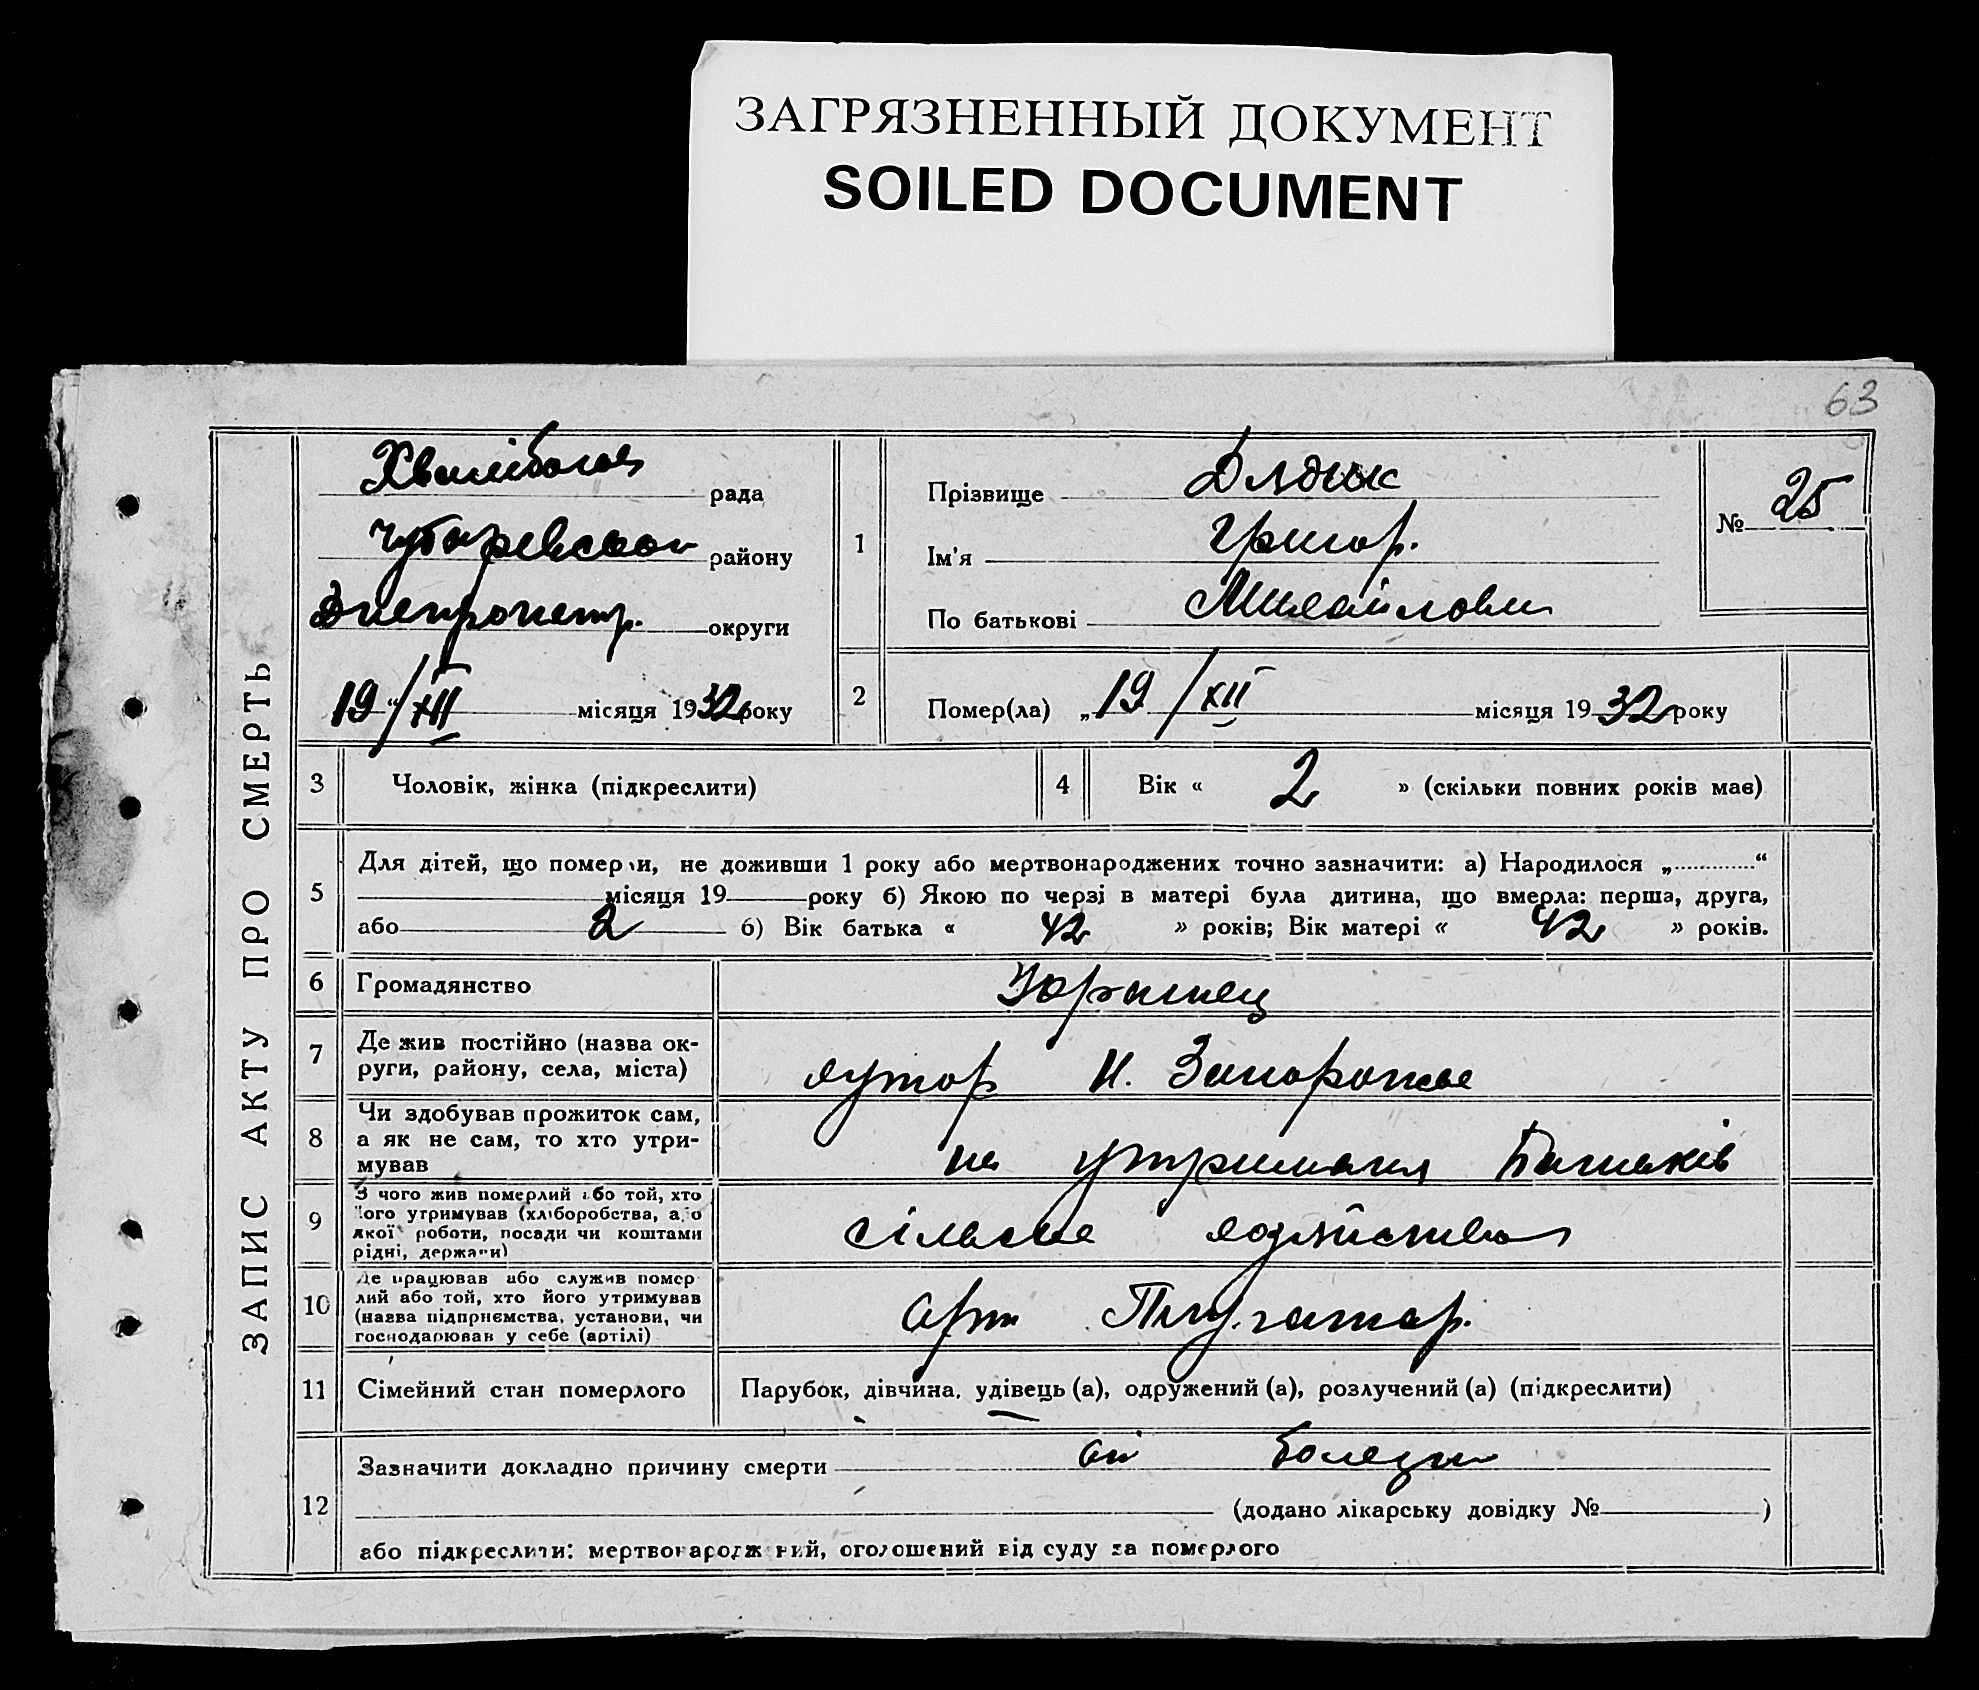 ЗАГРЯЗНЕННЫЙ ДОКУМЕНТ
SOILED DOCUMENT
63
ЗАПИС АКТУ ПРО СМЕРТЬ
рада
района району
Днепропетр. округи
19/XII місяця 1932 року
1
Прізвище Дядик
Ім'я Григор.
По батькові Михайлович
№ 25
2
Помер(ла) „19/XII місяця 1932 року
3 Чоловік, жінка (підкреслити)
4 Вік « 2 » (скільки повних років має)
5
Для дітей, що померли, не доживши 1 року або мертвонароджених точно зазначити: а) Народилося „ “
місяця 19 року б) Якою по черзі в матері була дитина, що вмерла: перша, друга,
або 2 б) Вік батька « 42 » років; Вік матері « 42 » років.
6 Громадянство
7 Де жив постійно (назва ок-
руги, району, села, міста)
хутор Н. Запорожье
8 Чи здобував прожиток сам,
а як не сам, то хто утри-
мував
на утримания Батьків
9 З чого жив померлий або той, хто
його утримував (хліборобства, або
якої роботи, посади чи коштами
рідні, держави)
сільске
10 Де працював або служив помер
лий або той, хто його утримував
(назва підприємства, установи, чи
господарював у себе (артілі)
арт
11 Сімейний стан померлого
Парубок, дівчина, удівець (а), одружений (а), розлучений (а) (підкреслити)
12
Зазначити докладно причину смерти от болезни
(додано лікарську довідку № )
або підкреслити: мертвонароджений, оголошений від суду за померлого